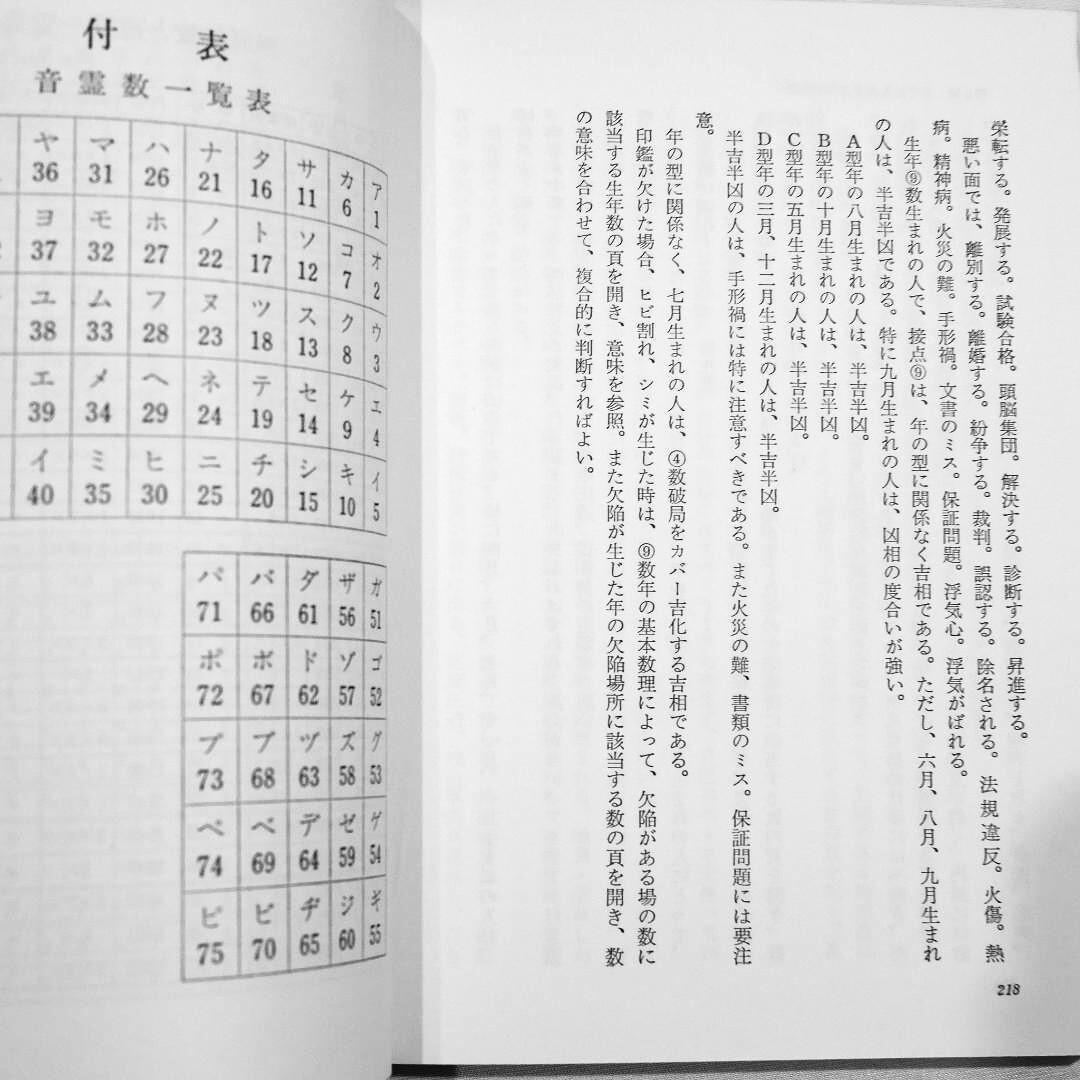 栄転する。発展する。試験合格。頭脳集団。解決する。診断する。昇進する。
悪い面では、離別する。離婚する。紛争する。裁判。誤認する。除名される。法規違反。火傷。熱
病。精神病。火災の難。手形禍。文書のミス。保証問題。浮気心。浮気がばれる。
生年⑨数生まれの人で、接点⑨は、年の型に関係なく吉相である。ただし、六月、八月、九月生まれ
の人は、半吉半凶である。特に九月生まれの人は、凶相の度合いが強い。
A型年の八月生まれの人は、半吉半凶。
B型年の十月生まれの人は、半吉半凶。
C型年の五月生まれの人は、半吉半凶。
D型年の三月、十二月生まれの人は、半吉半凶。
半吉半凶の人は、手形禍には特に注意すべきである。また火災の難、書類のミス。保証問題には要注
意。
年の型に関係なく、七月生まれの人は、④数破局をカバー吉化する吉相である。
印鑑が欠けた場合、ヒビ割れ、シミが生じた時は、⑨数年の基本数理によって、欠陥がある場の数に
該当する生年数の頁を開き、意味を参照。また欠陥が生じた年の欠陥場所に該当する数の頁を開き、数
の意味を合わせて、複合的に判断すればよい。
218
付表
音霊数一覧表
ヤ マ ハ ナ タ サ カ ア
36 31 26 21 16 11 6 1
ヨ モ ホ ノ ト ソ コ オ
37 32 27 22 17 12 7 2
ユ ム フ ヌ ツ ス ク ウ
38 33 28 23 18 13 8 3
エ メ ヘ ネ テ セ ケ エ
39 34 29 24 19 14 9 4
イ ミ ヒ ニ チ シ キ イ
40 35 30 25 20 15 10 5
パ バ ダ ザ ガ
71 66 61 56 51
ポ ボ ド ゾ ゴ
72 67 62 57 52
プ ブ ヅ ズ グ
73 68 63 58 53
ペ ベ デ ゼ ゲ
74 69 64 59 54
ピ ビ ヂ ジ ギ
75 70 65 60 55